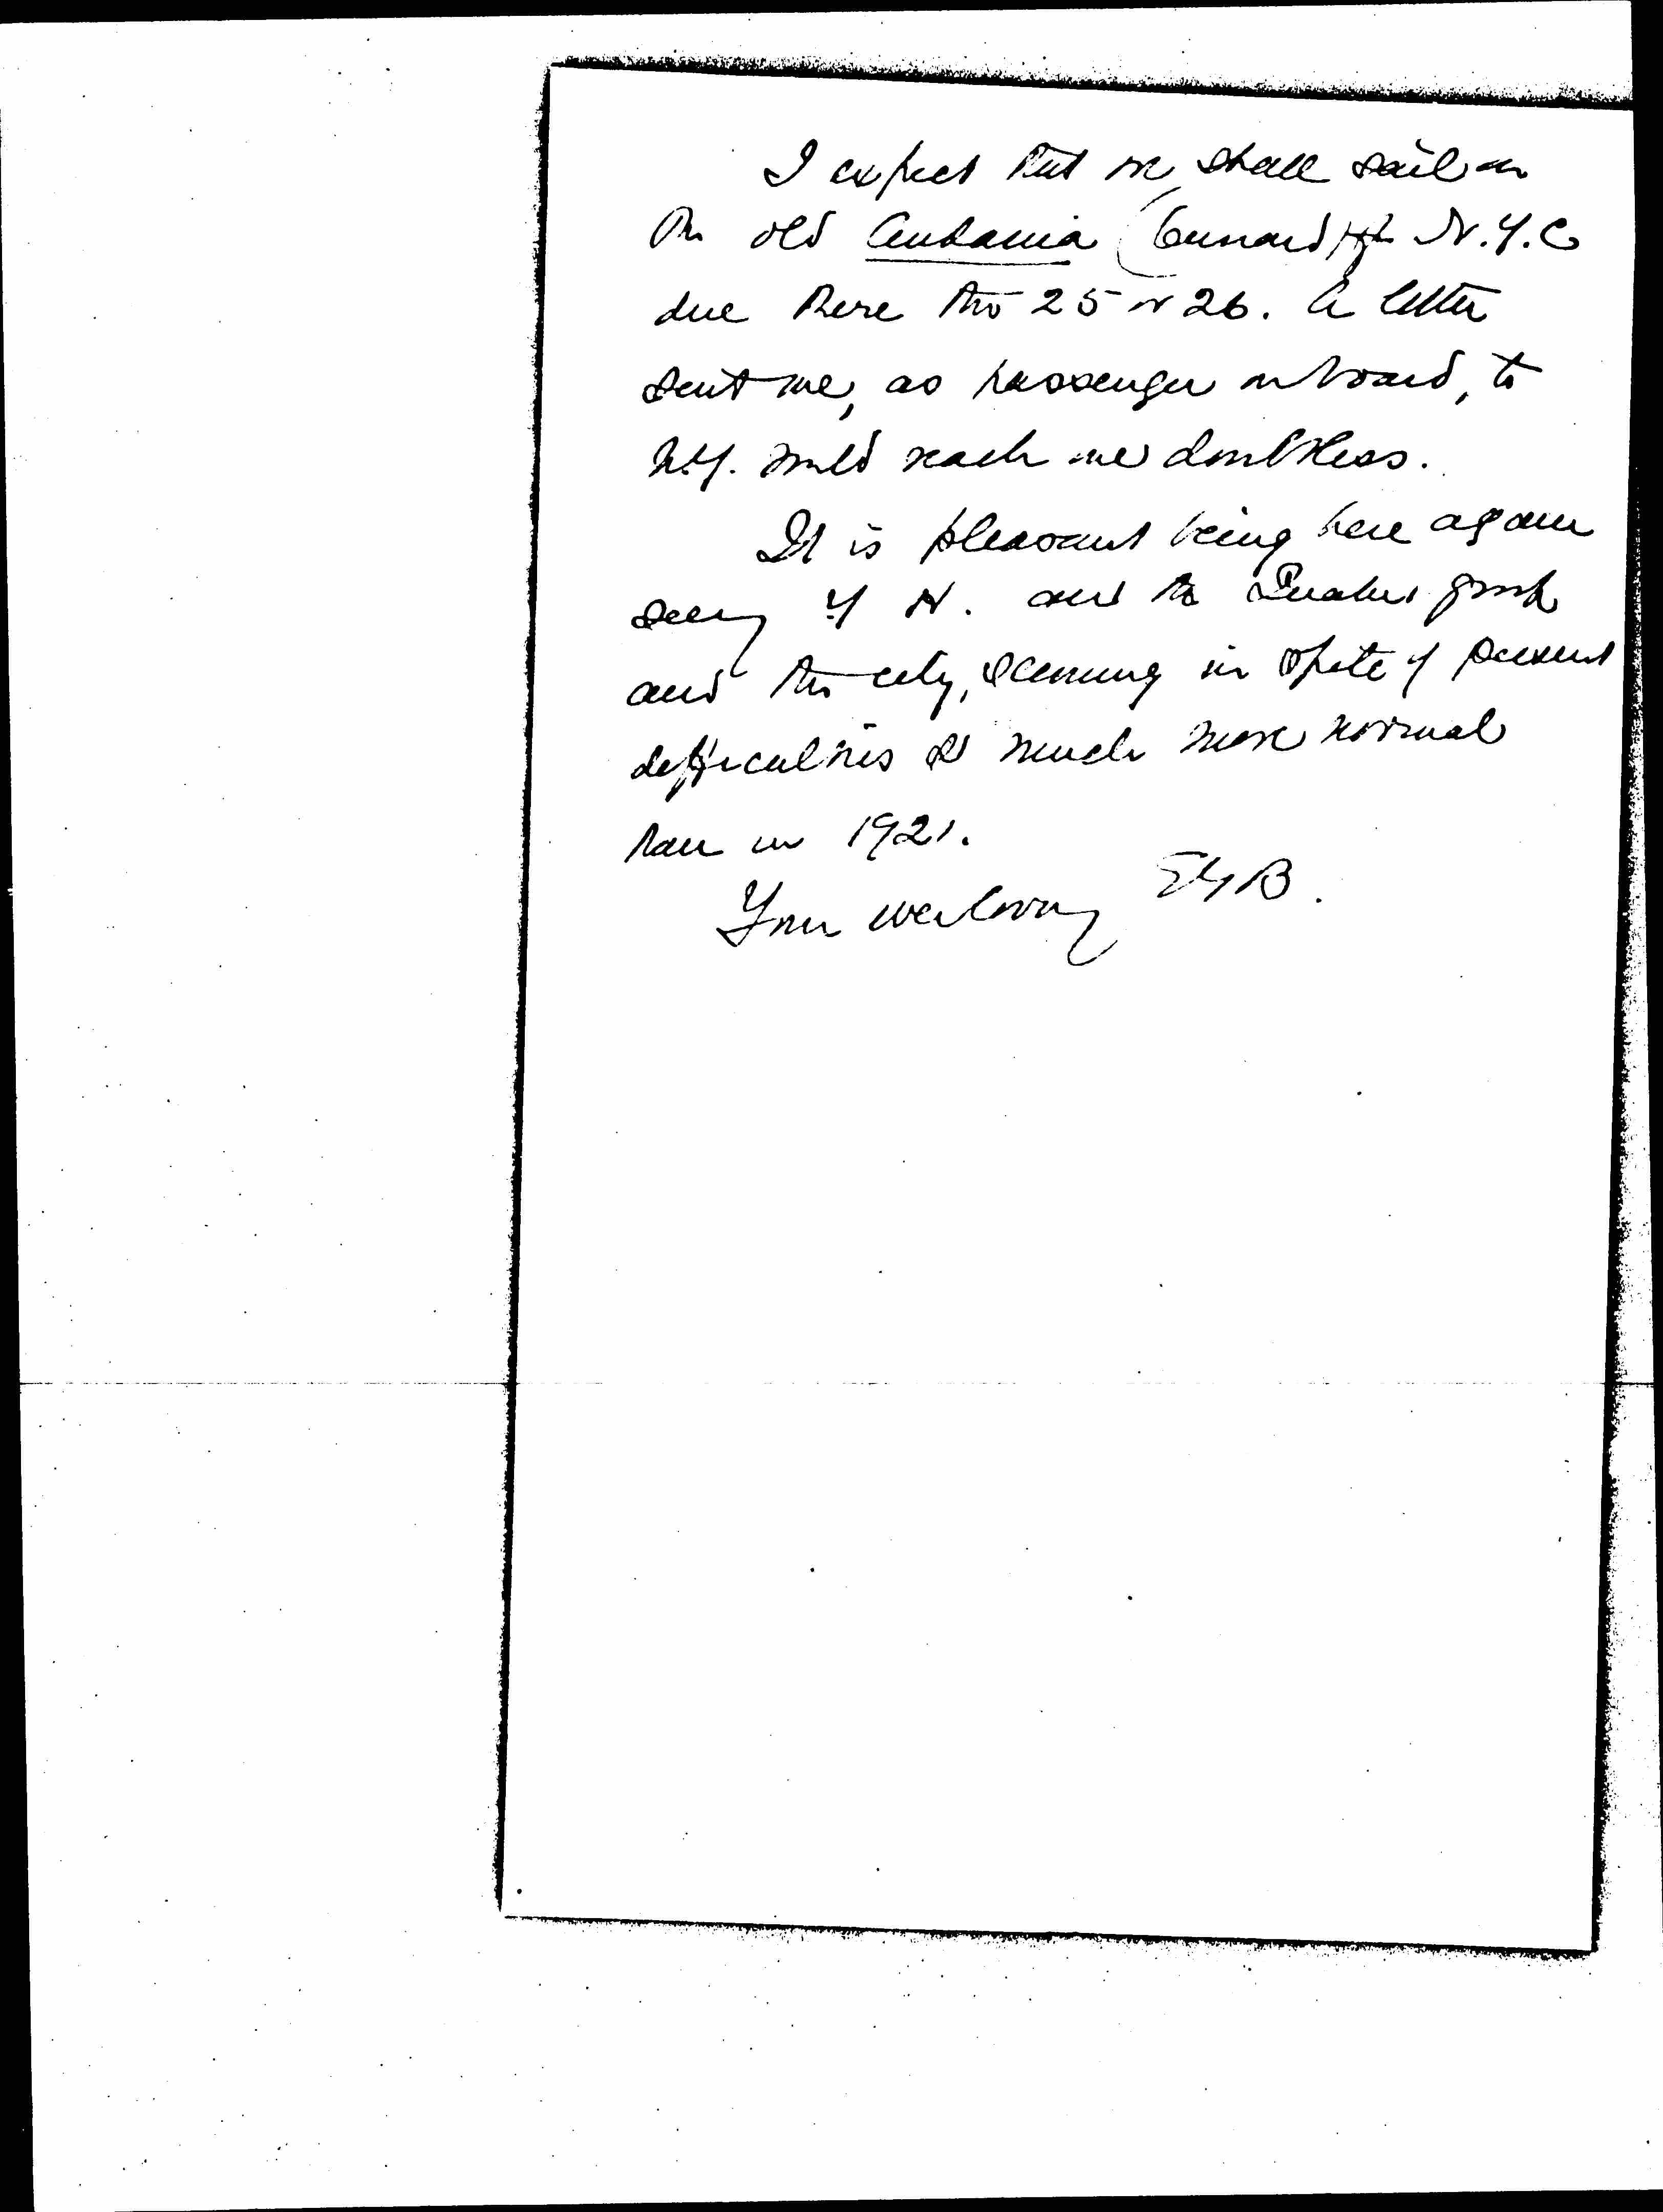 I expect that we shall sail on
the old Andania (Cunard) for N.Y.C
due there the 25 or 26. A letter
sent me, as passenger on board, to
N.Y. would reach me doubtless.
It is pleasant being here again
seeing Y N. and the Quaker group
and the city, seeming in spite of present
difficulties so much more normal
than in 1921.
Your everloving EGB.